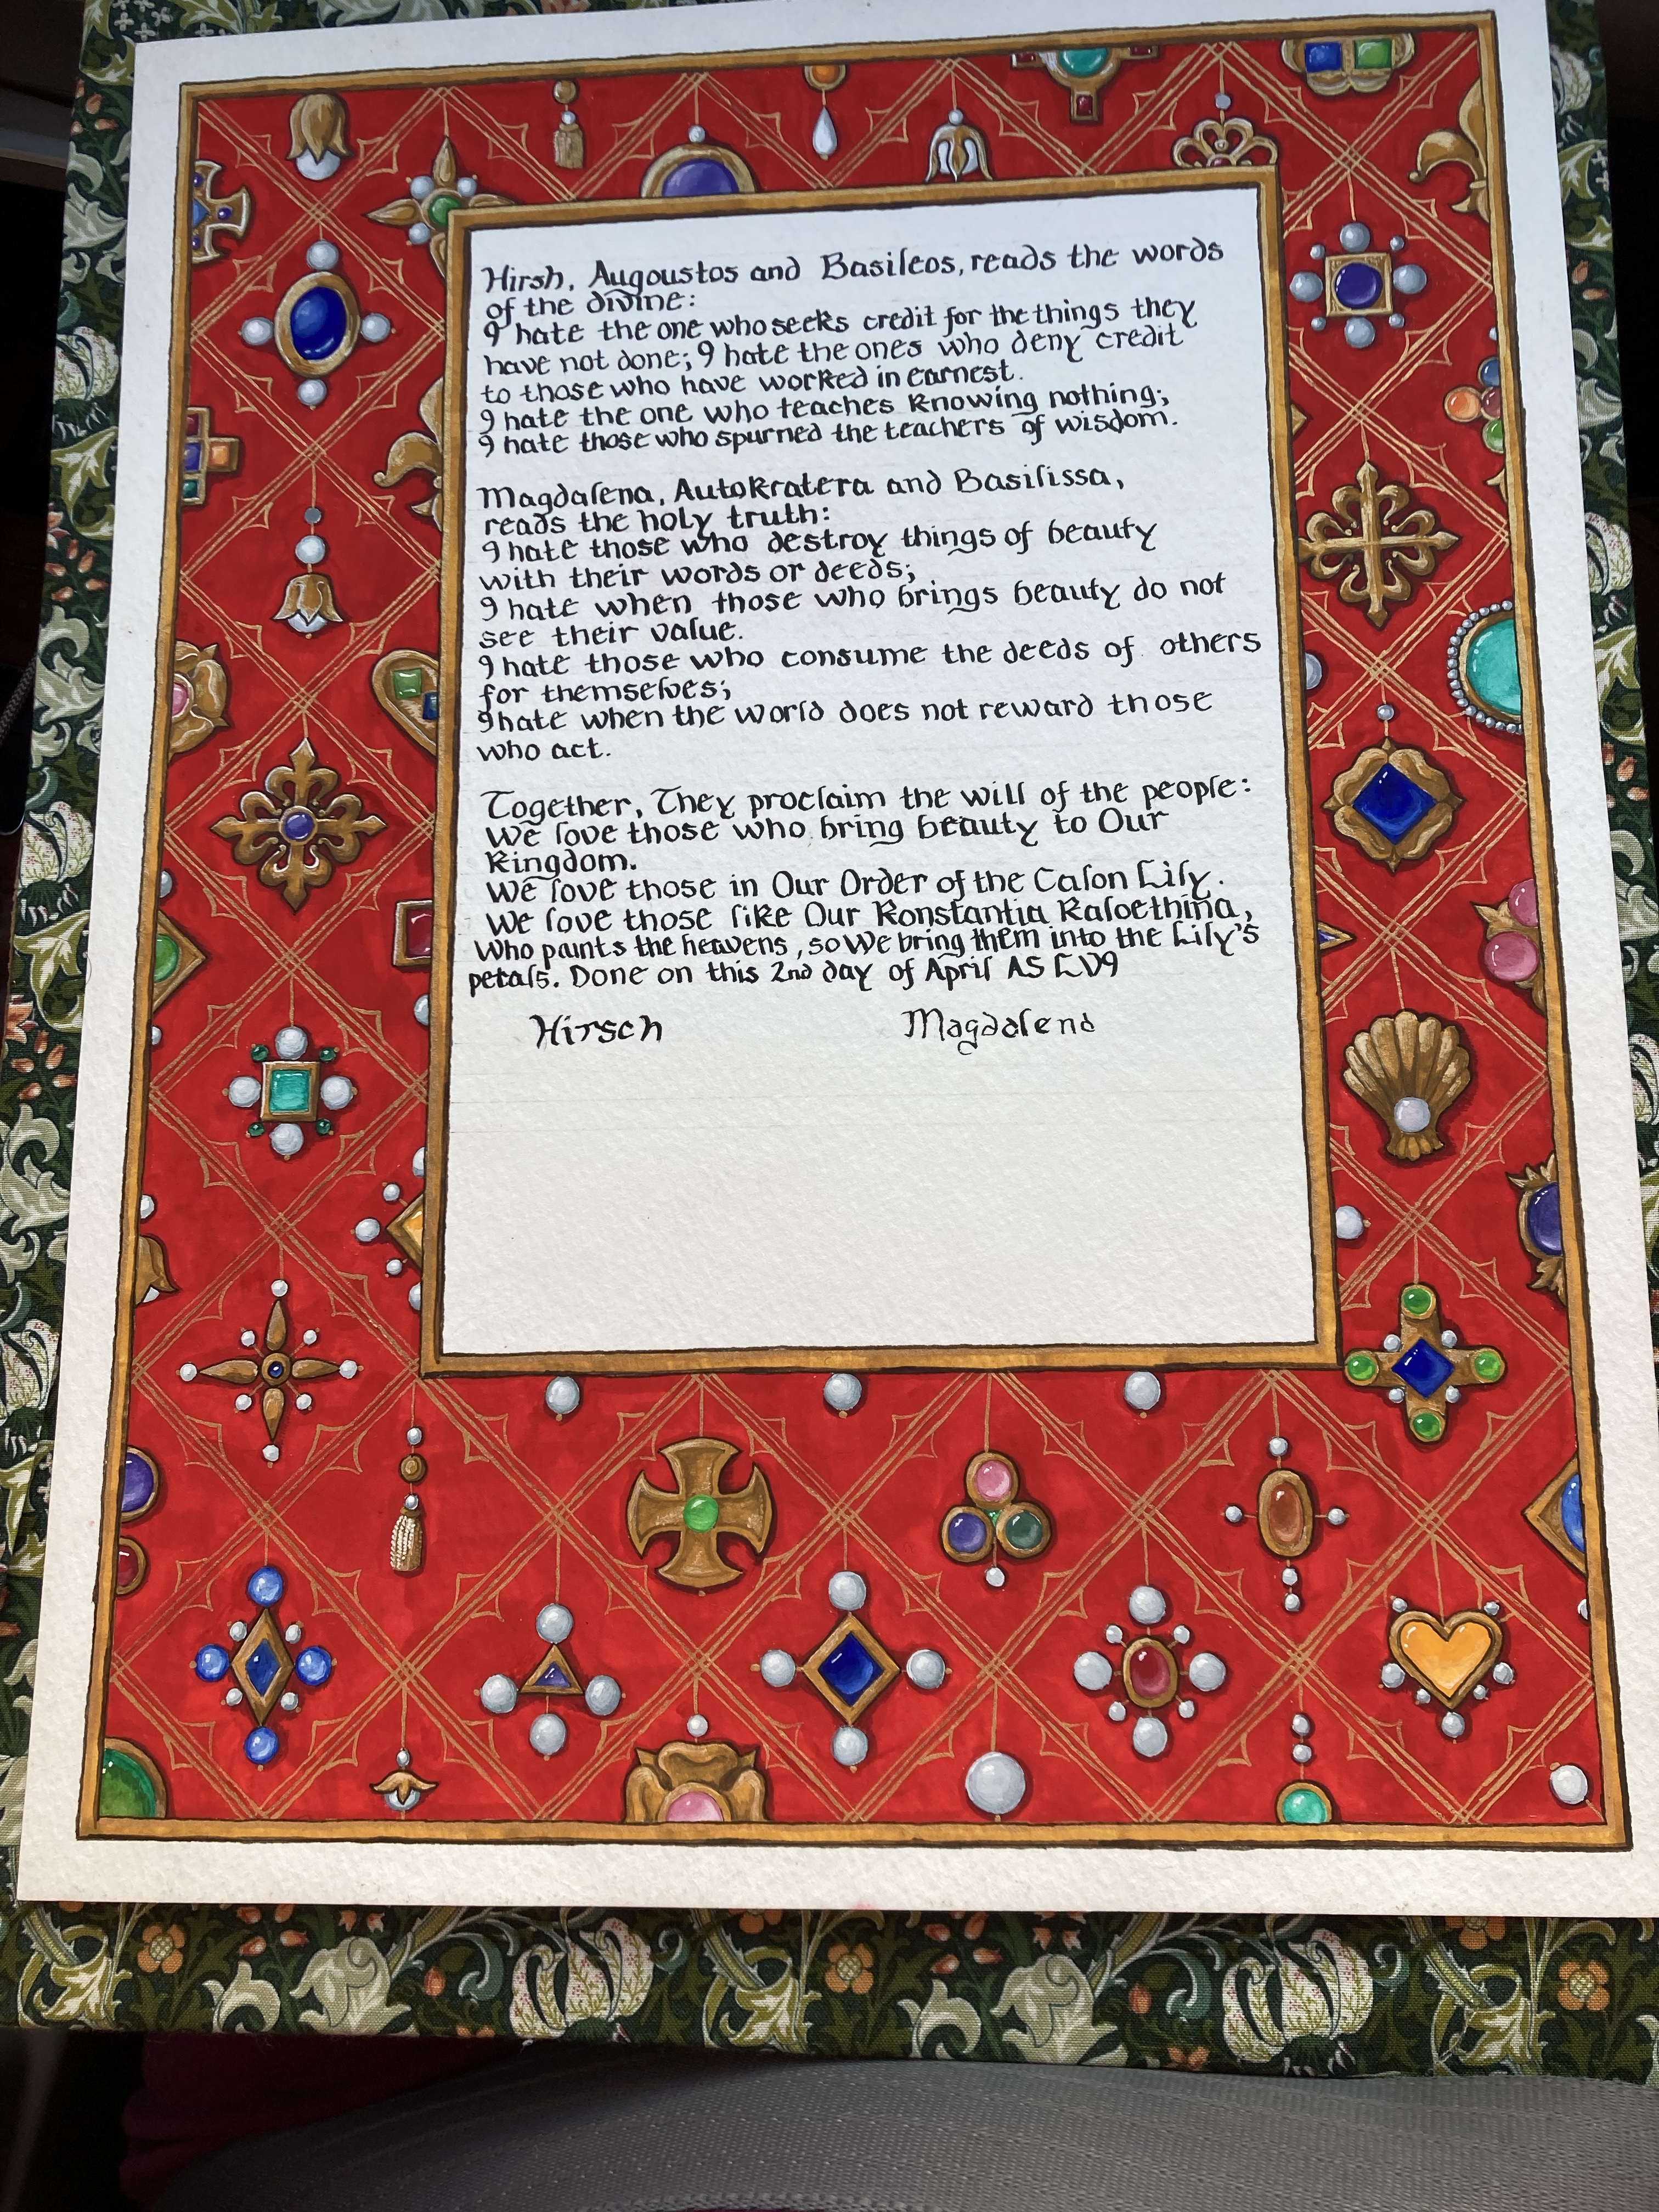 Hirsh, Augoustos and Basileos, reads the words
of the divine:
I hate the one who seeks credit for the things they
have not done; I hate the ones who deny credit
to those who have worked in earnest.
I hate the one who teaches knowing nothing;
I hate those who spurned the teachers of wisdom.
Magdalena, Autokratera and Basilissa,
reads the holy truth:
I hate those who destroy things of beauty
with their words or deeds;
I hate when those who brings beauty do not
see their value.
I hate those who consume the deeds of others
for themselves;
I hate when the world does not reward those
who act.
Together, They proclaim the will of the people:
We love those who bring beauty to Our
Kingdom.
We love those in Our Order of the Calon Lily.
We love those like Our Konstantia Kaloethina,
Who paints the heavens, so We bring them into the Lily's
petals. Done on this 2nd day of April AS LVI
Hirsch Magdalena